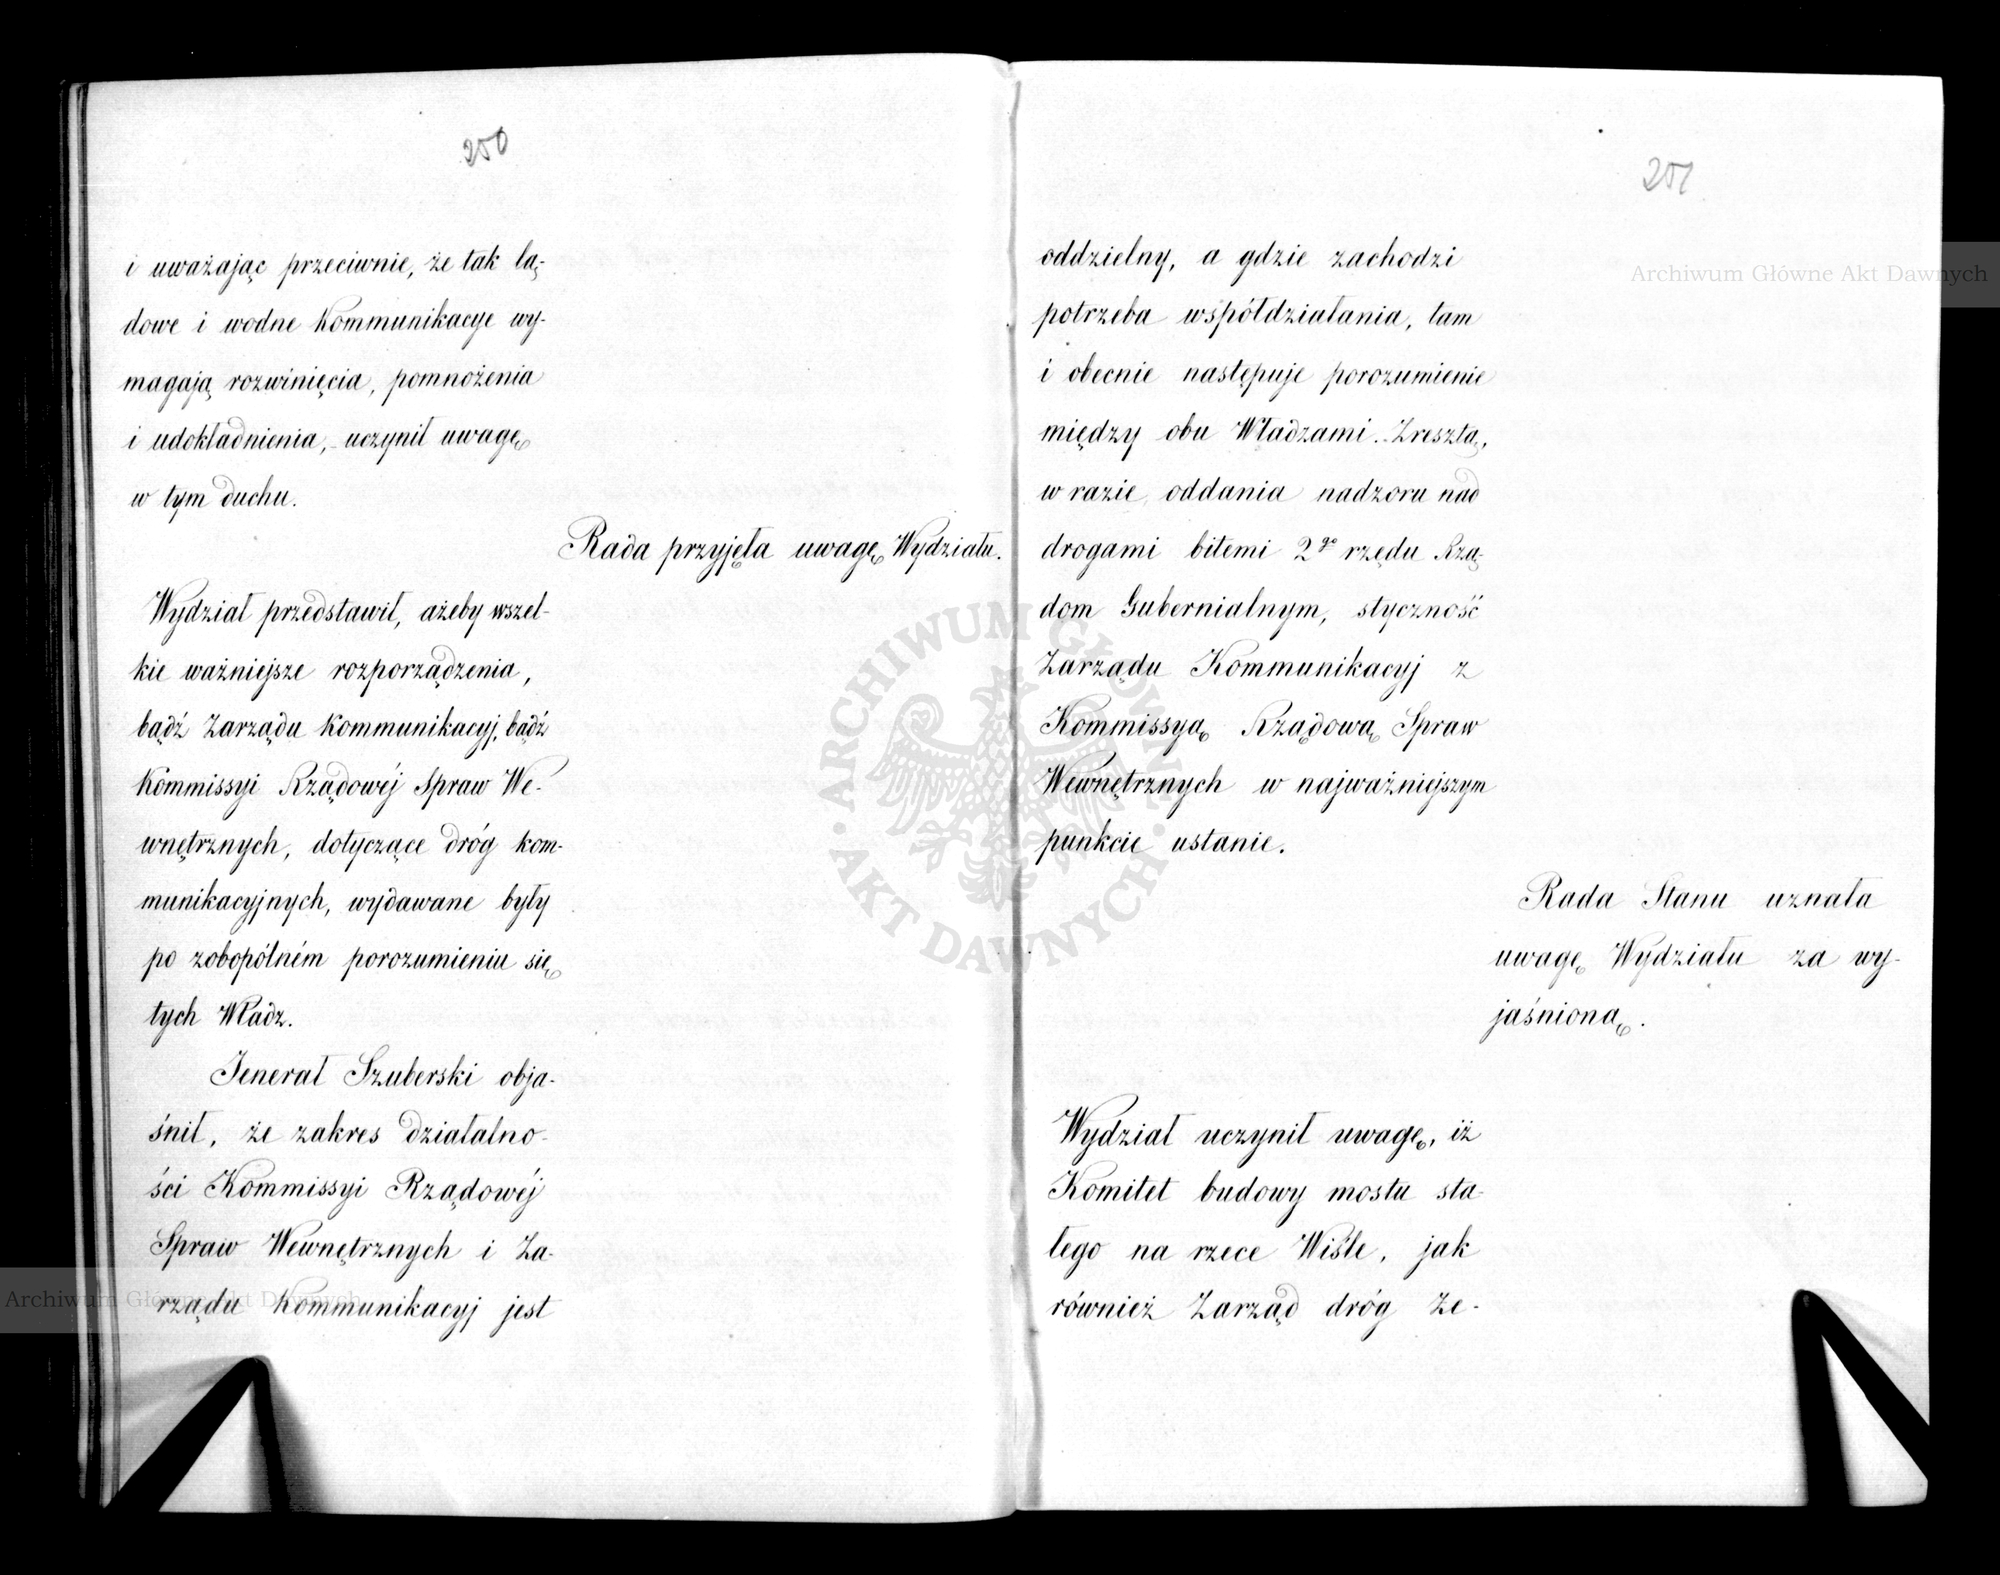 250
i uważając przeciwnie, że tak lą-
dowe i wodne Kommunikacye wy-
magają rozwinięcia, pomnożenia
i udokładnienia, uczynił uwagę
w tym duchu.
Rada przyjęła uwagę Wydziału.
Wydział przedstawił, ażeby wszel-
kie ważniejsze rozporządzenia,
bądź Zarządu Kommunikacyj, bądź
Kommissyi Rządowéj Spraw We-
wnętrznych, dotyczące dróg kom-
munikacyjnych, wydawane były
po zobopólném porozumieniu się
tych Władz.
Jenerał Szuberski obja-
śnił, że zakres działalno-
ści Kommissyi Rządowéj
Spraw Wewnętrznych i Za-
rządu Kommunikacyj jest
251
oddzielny, a gdzie zachodzi
potrzeba współdziałania, tam
i obecnie następuje porozumienie
między obu Władzami. Zresztą,
w razie oddania nadzoru nad
drogami bitemi 2go rzędu Rzą-
dom Gubernialnym, styczność
Zarządu Kommunikacyj z
Kommissyą Rządową Spraw
Wewnętrznych w najważniejszym
punkcie ustanie.
Rada Stanu uznała
uwagę Wydziału za wy-
jaśnioną.
Wydział uczynił uwagę, iż
Komitet budowy mostu sta-
łego na rzece Wiśle, jak
również Zarząd dróg że-
Archiwum Główne Akt Dawnych
Archiwum Główne Akt Dawnych
ARCHIWUM GŁÓWNE AKT DAWNYCH